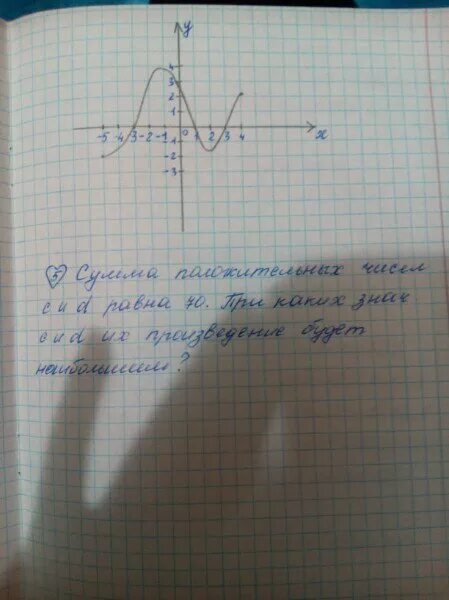 y
4
3
2
1
-5 -4 -3 -2 -1 0 1 2 3 4 x
-1
-2
-3
5 Сумма положительных чисел
c и d равна 70. При каких знач
c и d их произведение будет
наибольшим?